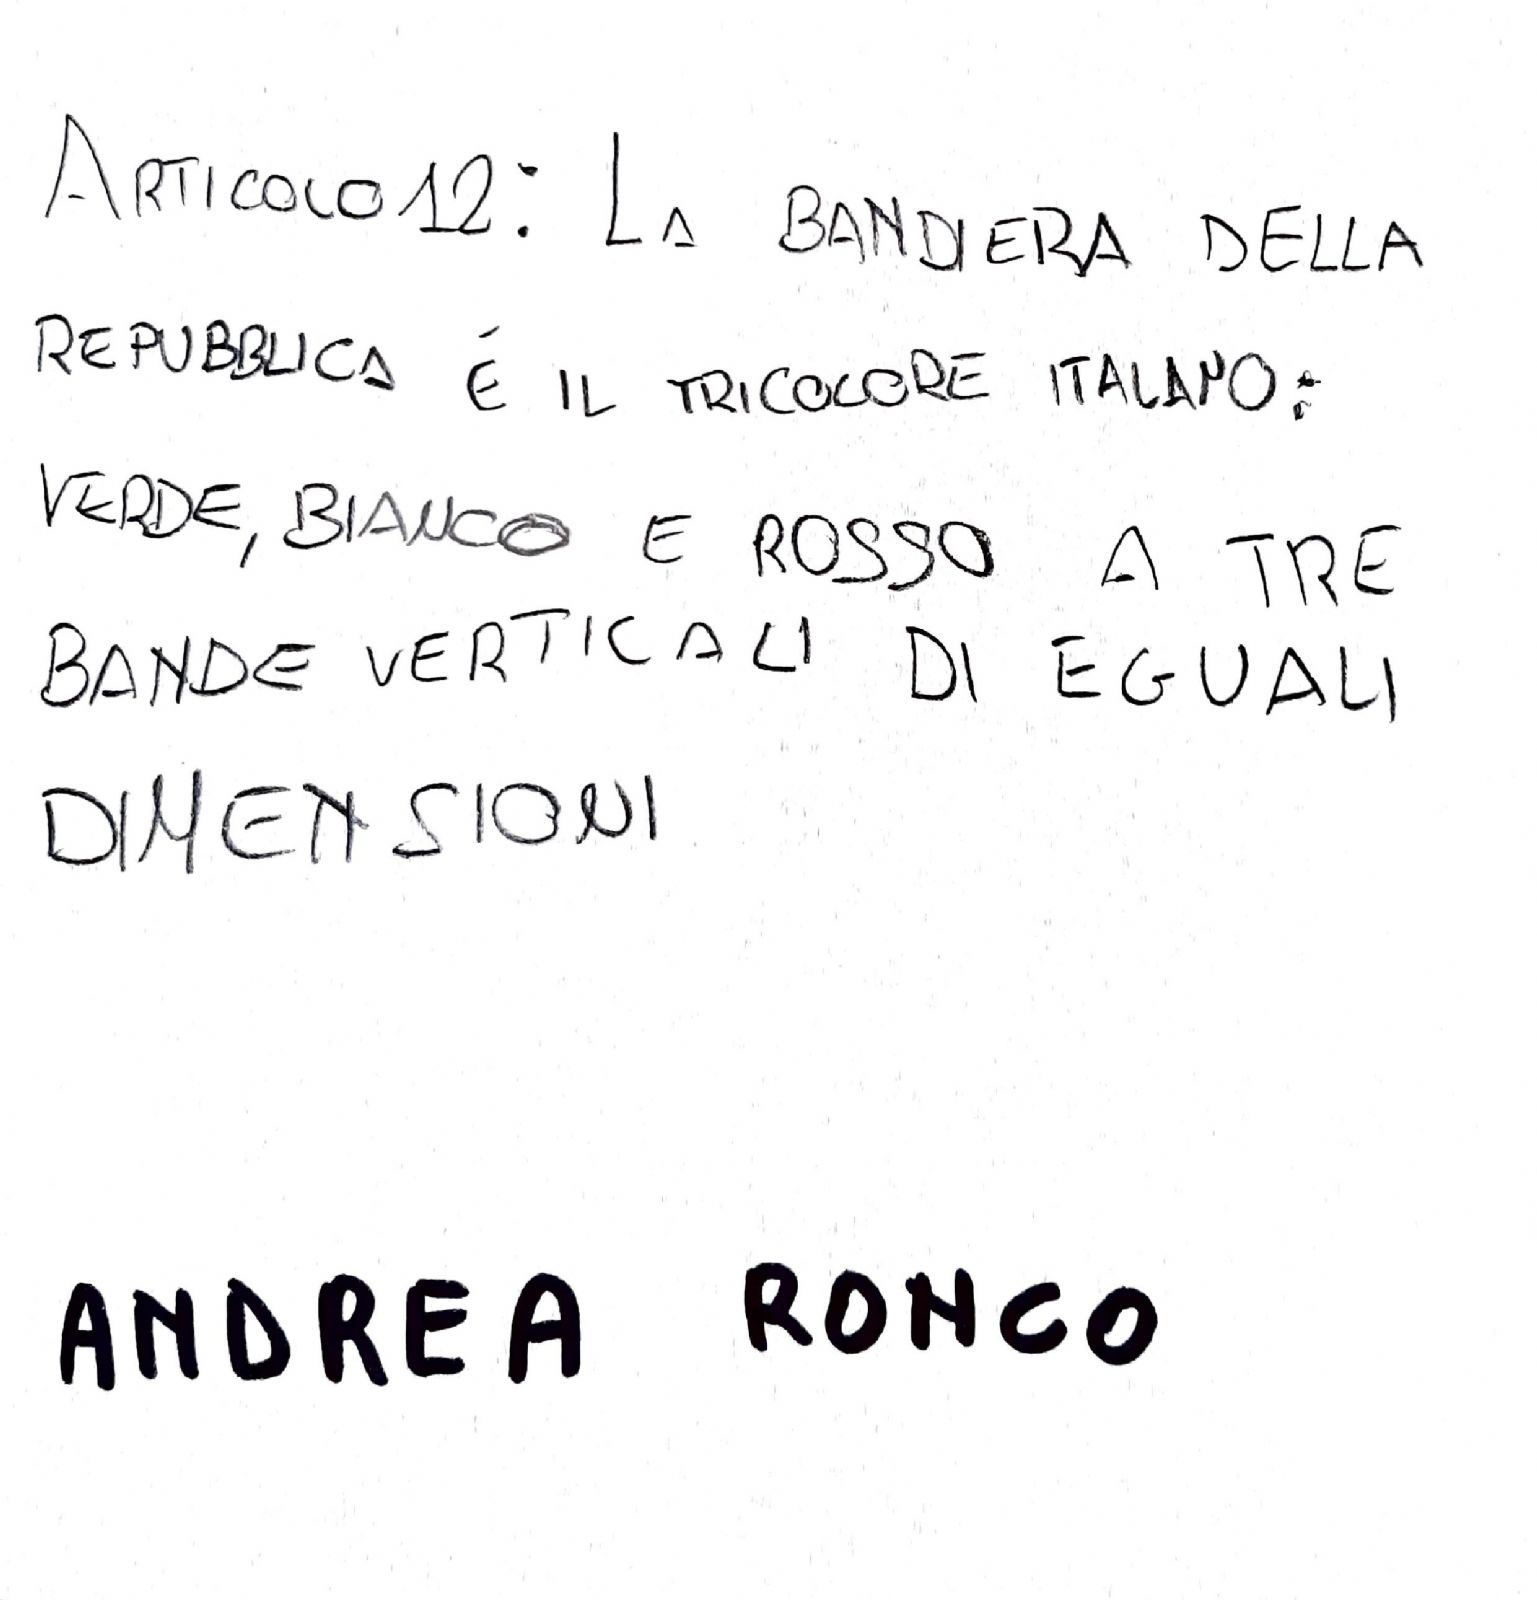 ARTICOLO 12: LA BANDIERA DELLA
REPUBBLICA É IL TRICOLORE ITALANO:
VERDE, BIANCO E ROSSO A TRE
BANDE VERTICALI DI EGUALI
DIMENSIONI
ANDREA RONCO